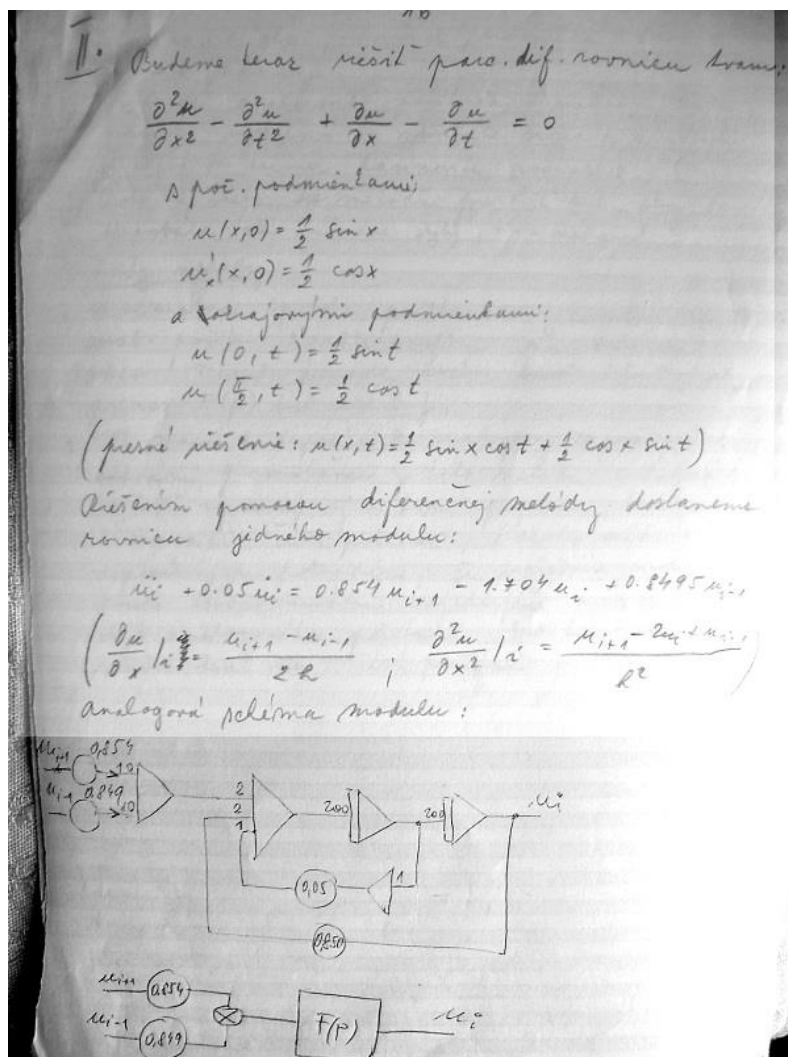 II. Budeme teraz riešiť parc. dif. rovnicu tvaru:
∂²u/∂x² - ∂²u/∂t² + ∂u/∂x - ∂u/∂t = 0
s poč. podmienkami:
u(x,0) = 1/2 sin x
u'ₓ(x,0) = 1/2 cos x
a okrajovými podmienkami:
u(0,t) = 1/2 sin t
u(π/2,t) = 1/2 cos t
(presné riešenie: u(x,t) = 1/2 sin x cos t + 1/2 cos x sin t)
Riešením pomocou diferenčnej metódy dostaneme
rovnicu jedného modulu:
üi + 0.05 u̇i = 0.854 ui+1 - 1.704 ui + 0.8495 ui-1
(∂u/∂x /i = (ui+1 - ui-1)/2h ; ∂²u/∂x² /i = (ui+1 - 2ui + ui-1)/h²)
analogová schéma modulu:
ui+1 0,854 10
ui-1 0,849 10
2 2 1 200 200 ui
0,05 1
0,850
ui+1 0,854
ui-1 0,849
F(p) ui